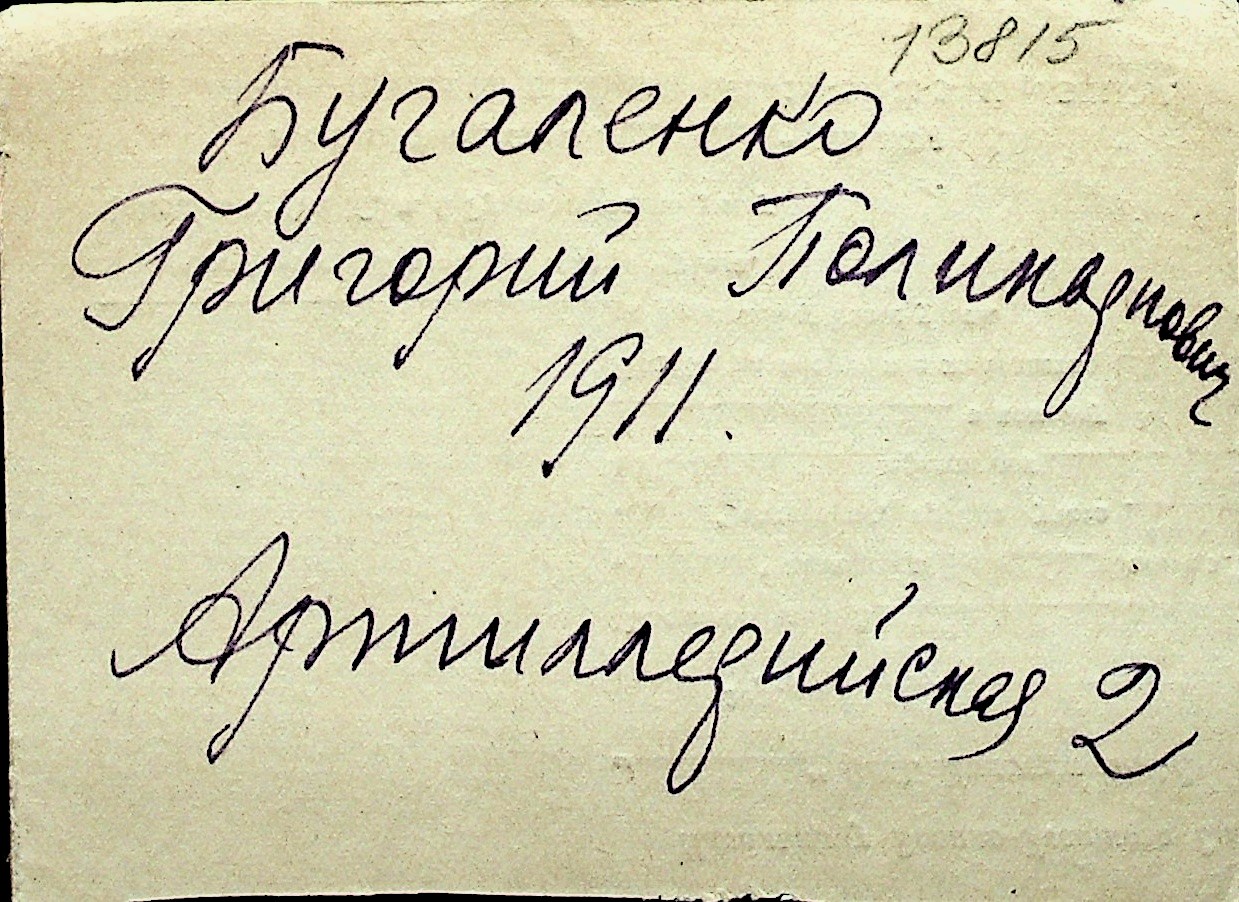 13815
Бугаленко
Григорий Поликарпович
1911.
Артиллерийская 2